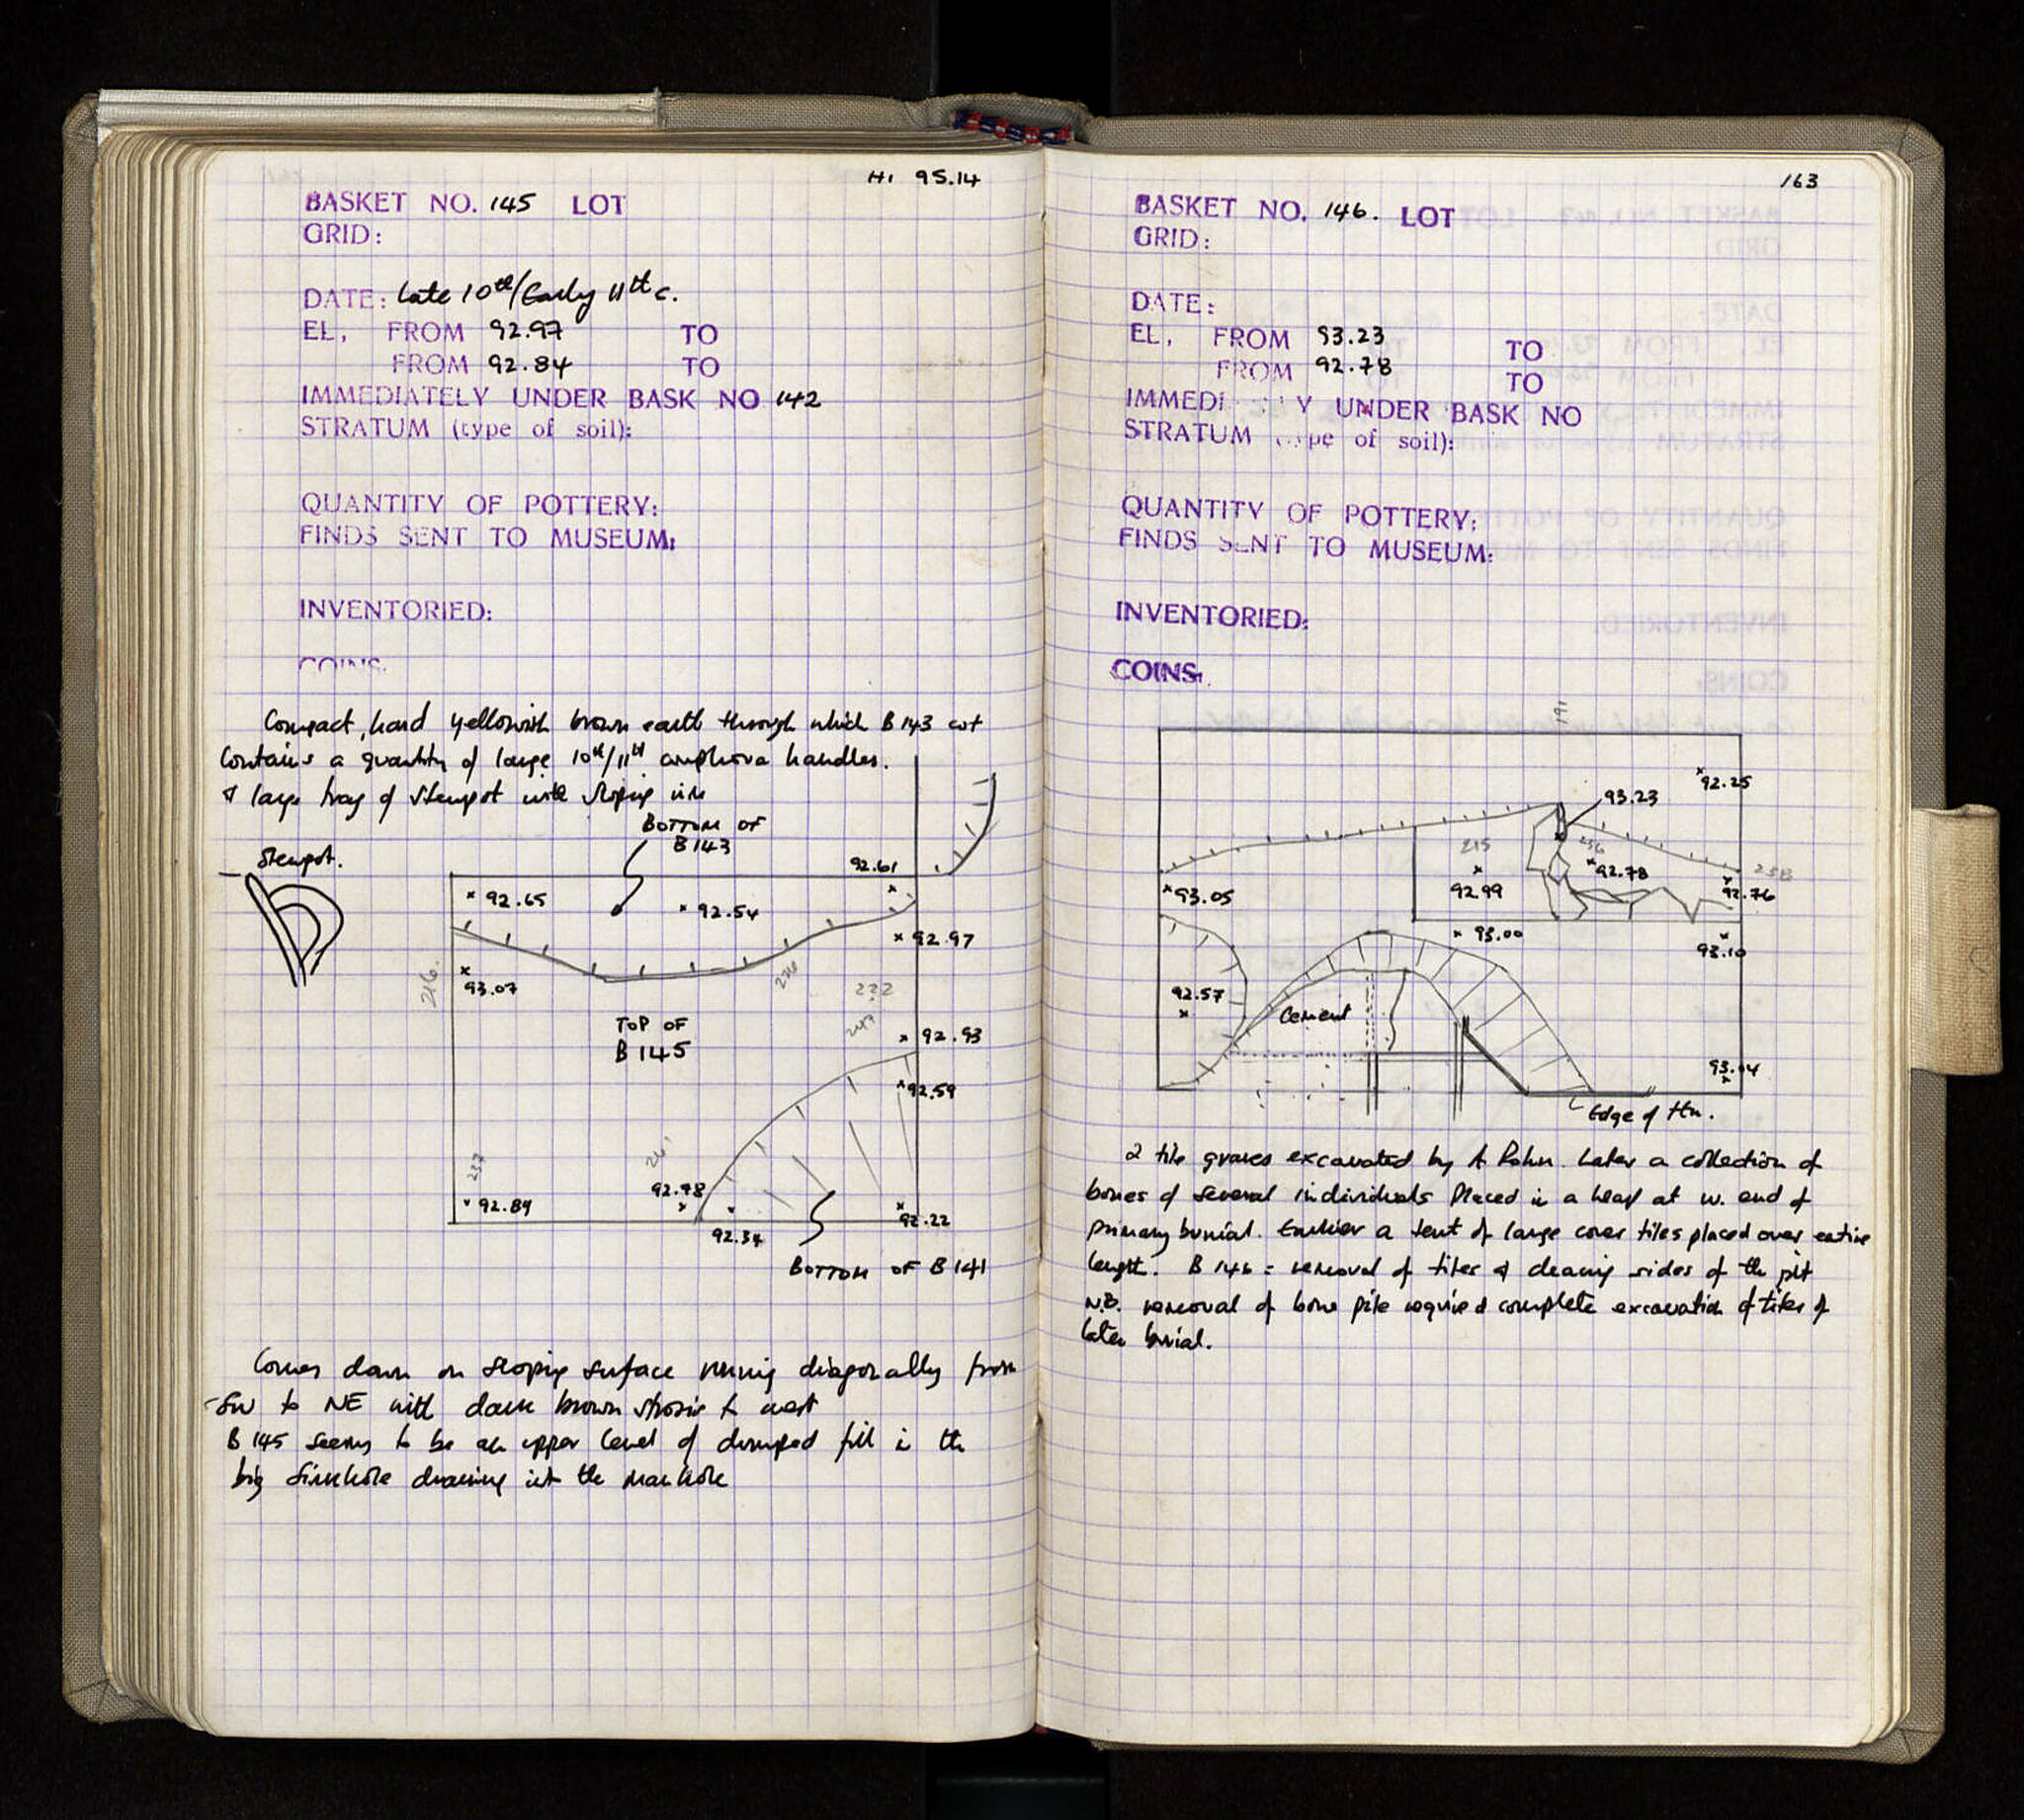 HI 95.14
BASKET NO. 145 LOT
GRID:
DATE: Late 10th/Early 11th c.
EL, FROM 92.97 TO
FROM 92.84 TO
IMMEDIATELY UNDER BASK NO 142
STRATUM (type of soil):
QUANTITY OF POTTERY:
FINDS SENT TO MUSEUM:
INVENTORIED:
COINS:
Compact, hard yellowish brown earth through which B 143 cut
Contains a quantity of large 10th/11th amphora handles.
& large frag of Stewpot with sloping rim
BOTTOM OF
B 143
Stewpot.
92.61
92.65
92.54
92.97
216.
93.07
222
TOP OF
B 145
92.93
92.59
237
92.78
92.89
92.34
92.22
BOTTOM OF B 141
Comes down on sloping surface running diagonally from
SW to NE with dark brown strosis to west
B 145 seems to be an upper level of dumped fill in the
big sinkhole draining into the manhole
163
BASKET NO. 146. LOT
GRID:
DATE:
EL, FROM 93.23 TO
FROM 92.78 TO
IMMEDI Y UNDER BASK NO
STRATUM (type of soil):
QUANTITY OF POTTERY:
FINDS SENT TO MUSEUM:
INVENTORIED:
COINS:
191
92.25
93.23
215
256
92.78
258
93.05
92.99
92.76
93.00
93.10
92.57
Cement
93.04
Edge of Tr.
2 tile graves excavated by A Rohn. Later a collection of
bones of several individuals placed in a heap at w. end of
primary burial. Earlier a tent of large cover tiles placed over entire
length. B 146 = removal of tiles & cleaning sides of the pit
N.B. removal of bone pile required complete excavation of tiles of
later burial.